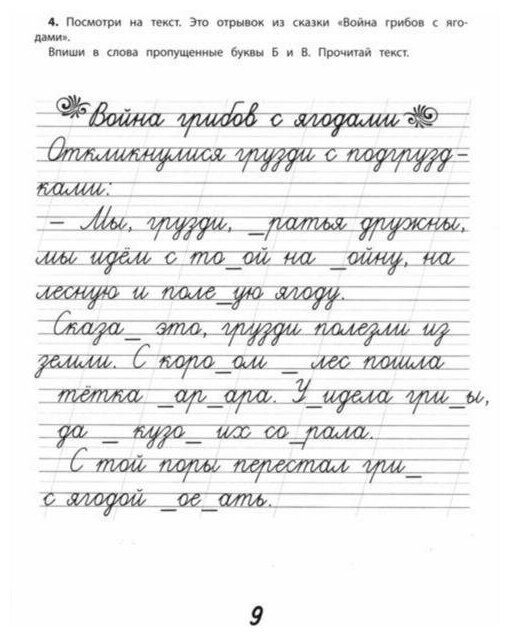 4. Посмотри на текст. Это отрывок из сказки «Война грибов с яго-
дами».
Впиши в слова пропущенные буквы Б и В. Прочитай текст.
Война грибов с ягодами
Откликнулися грузди с подгрузд-
ками:
– Мы, грузди, _ратья дружны,
мы идём с то_ой на _ойну, на
лесную и поле_ую ягоду.
Сказа_ это, грузди полезли из
земли. С коро_ом _ лес пошла
тётка _ар_ара. У_идела гри_ы,
да _ кузо_ их со_рала.
С той поры перестал гри_
с ягодой _ое_ать.
9